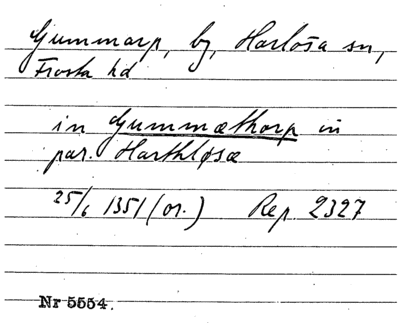 Gummarp, by, Harlösa sn,
Frosta hd
in Gummæthorp in
par. Harthløsæ
25/6 1351 (or.) Rep 2327
Nr 5554.